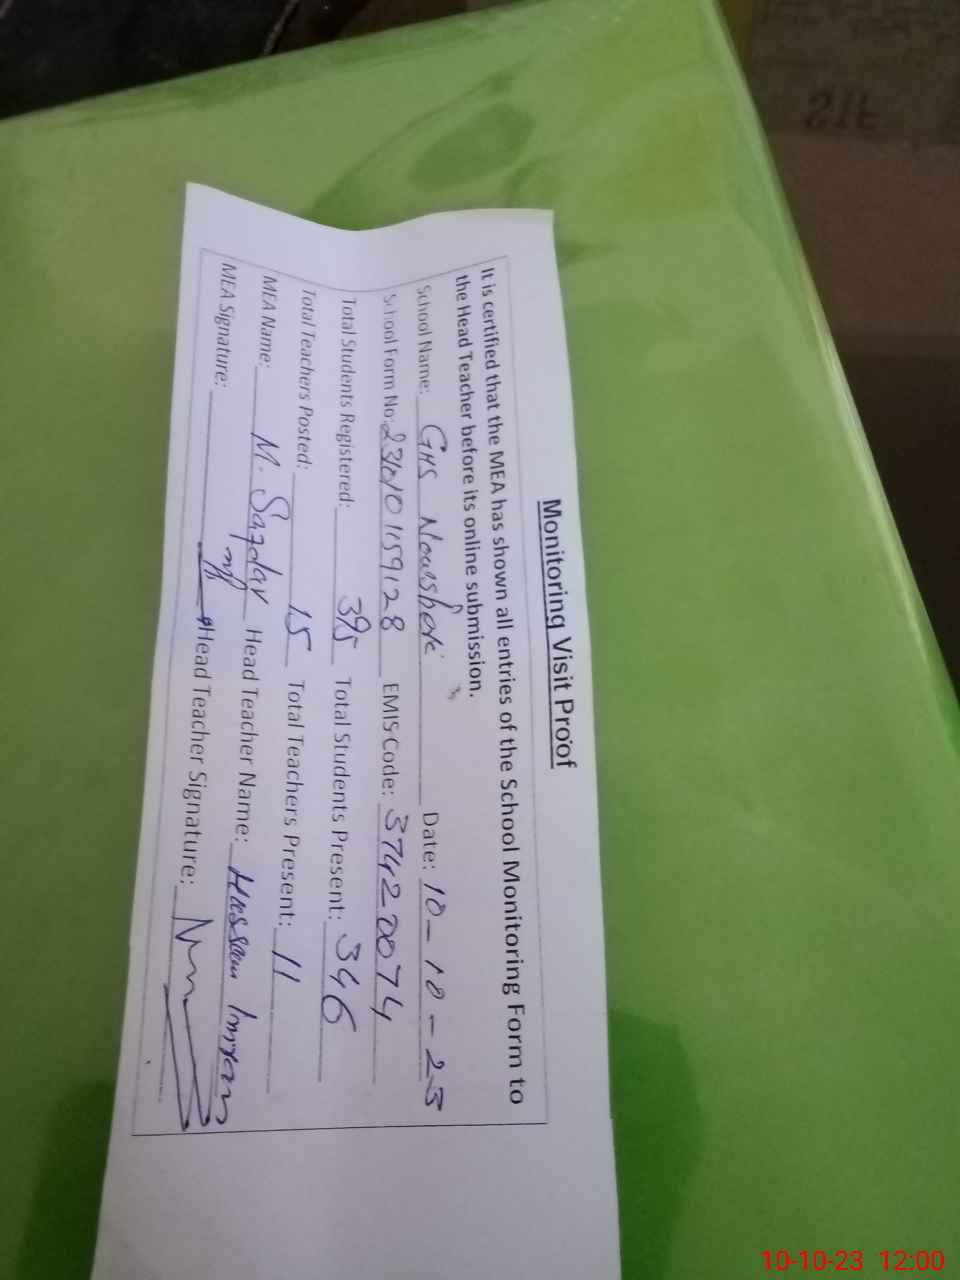 Monitoring Visit Proof
It is certified that the MEA has shown all entries of the School Monitoring Form to
the Head Teacher before its online submission.
School Name: GHS Date: 10-10-23
School Form No: EMIS Code: 37420074
Total Students Registered: 395 Total Students Present: 346
Total Teachers Posted: 15 Total Teachers Present: 11
MEA Name: M. Safdar Head Teacher Name: Hassam Imran
MEA Signature: Head Teacher Signature:
10-10-23 12:00